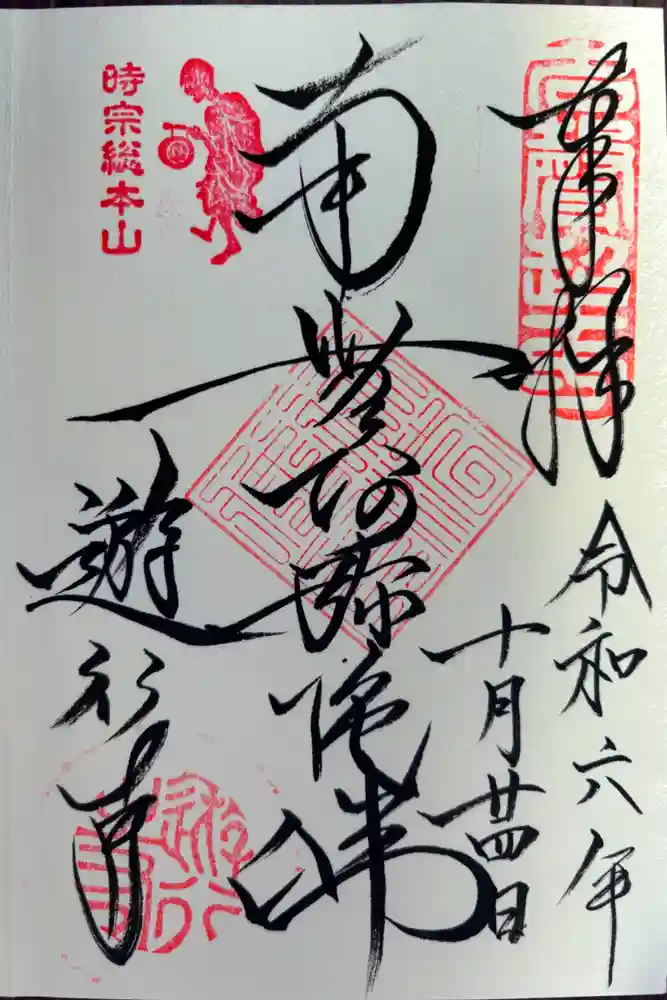 奉拝
令和六年
十月廿四日
南無阿弥陀佛
一
遊行寺
時宗総本山